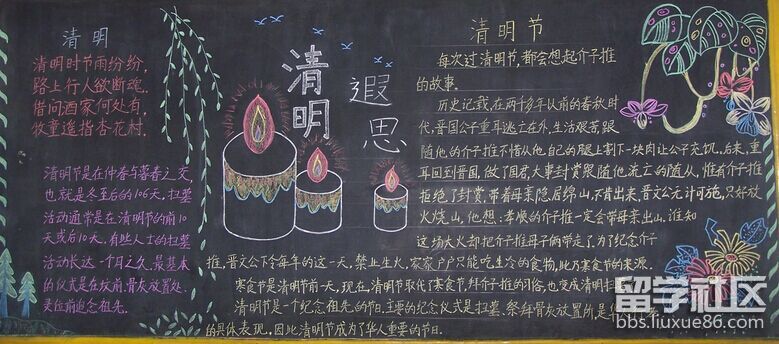 清明
清明时节雨纷纷,
路上行人欲断魂.
借问酒家何处有,
牧童遥指杏花村.
清明节是在仲春与暮春之交,
也就是冬至后的106天,扫墓
活动通常是在清明节的前10
天或后10天.有些人士的扫墓
活动长达一个月之久.最基本
的仪式是在坟前、骨灰放置处、
灵位前追念祖先.
清明
遐思
清明节
每次过清明节,都会想起介子推
的故事.
历史记载,在两千多年以前的春秋时
代,晋国公子重耳逃亡在外,生活艰苦,跟
随他的介子推不惜从他自己的腿上割下一块肉让公子充饥.后来,重
耳回到晋国,做了国君,大事封赏跟随他流亡的随从,惟有介子推
拒绝了封赏,带着母亲隐居绵山,不肯出来,晋文公无计可施,只好放
火烧山,他想:孝顺的介子推一定会带母亲出山.谁知
这场大火却把介子推母子俩带走了.为了纪念介子
推,晋文公下令每年的这一天,禁止生火,家家户户只能吃生冷的食物,此乃寒食节的来源.
寒食是清明节前一天,现在,清明节取代了寒食节,拜介子推的习俗,也变成清明扫
清明节是一个纪念祖先的节日.主要的纪念仪式是扫墓.祭拜骨灰放置所,是
的具体表现.因此清明节成为了华人重要的节日.
留学社区
bbs.liuxue86.com